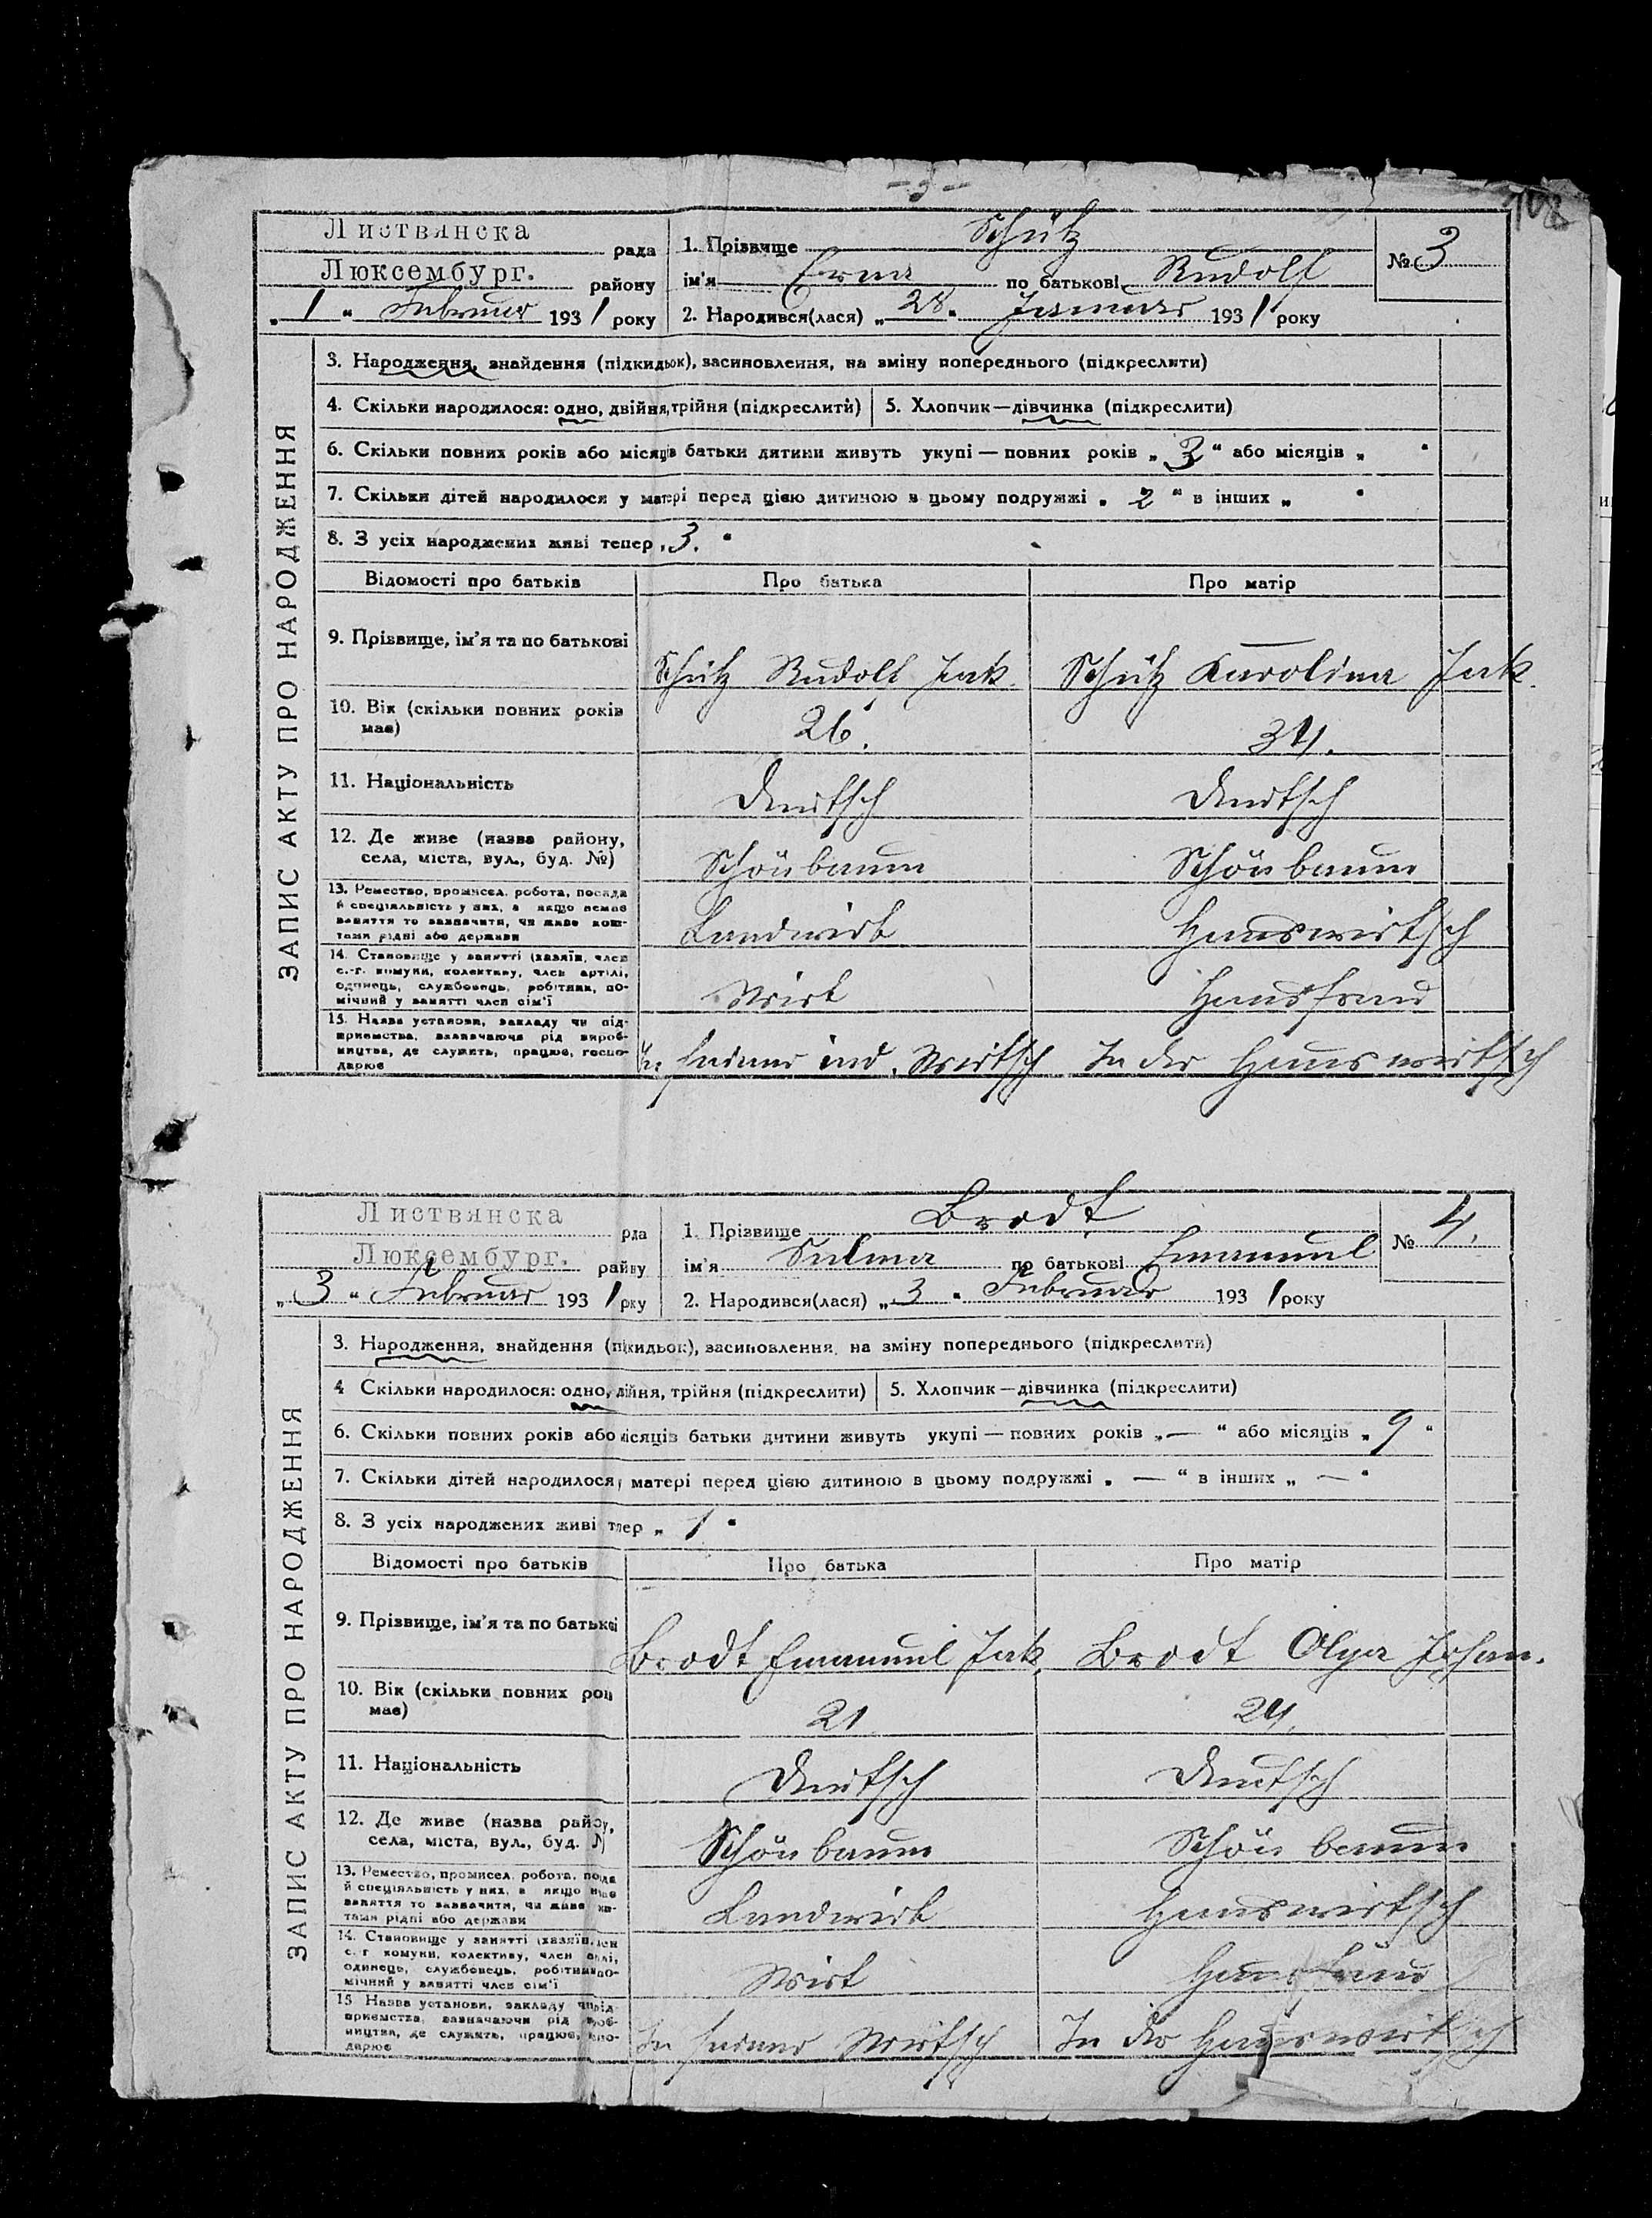 - 3 -
108
Листвянска рада
1. Прізвище Schütz
№ 3
Люксембург. району
ім'я Erna по батькові Rudolf
„ 1 “ Februar 1931 року
2. Народився(лася) „ 28 “ Januar 1931 року
ЗАПИС АКТУ ПРО НАРОДЖЕННЯ
3. Народження, знайдення (підкидьок), засиновлення, на зміну попереднього (підкреслити)
4. Скільки народилося: одно, двійня, трійня (підкреслити)
5. Хлопчик—дівчинка (підкреслити)
6. Скільки повних років або місяців батьки дитини живуть укупі — повних років „ 3 “ або місяців „ “
7. Скільки дітей народилося у матері перед цією дитиною в цьому подружжі „ 2 “ в інших „ “
8. З усіх народжених живі тепер „ 3. “
Відомості про батьків Про батька Про матір
9. Прізвище, ім'я та по батькові
Schütz Rudolf Jak. Schütz Karolina Jak.
10. Вік (скільки повних років має)
26. 34.
11. Національність
Deutsch Deutsch
12. Де живе (назва району, села, міста, вул., буд. №)
Schönbaum Schönbaum
13. Ремество, промисел, робота, посада й спеціяльність у них, а якщо немає заняття то зазначити, чи живе коштами рідні або держави
Landwirt Hauswirtsch
14. Становище у занятті (хазяїн, член с.-г. комуни, колективу, член артілі, одинець, службовець, робітник, помічний у занятті член сім'ї
Wirt Hausfrau
15. Назва установи, закладу чи підприємства, зазначаючи рід виробництва, де служить, працює, господарює
In seiner ind. Wirtsch In der Hauswirtsch
Листвянска рда
1. Прізвище Brodt
№ 4.
Люксембург. райну
ім'я Selma по батькові Emanuel
„ 3 “ Februar 1931 рку
2. Народився(лася) „ 3 “ Februar 1931 року
ЗАПИС АКТУ ПРО НАРОДЖЕННЯ
3. Народження, знайдення (пкидьок), засиновлення, на зміну попереднього (підкреслити)
4 Скільки народилося: одно, двійня, трійня (підкреслити)
5. Хлопчик—дівчинка (підкреслити)
6. Скільки повних років або місяців батьки дитини живуть укупі — повних років „ — “ або місяців „ 9 “
7. Скільки дітей народилося у матері перед цією дитиною в цьому подружжі „ — “ в інших „ — “
8. З усіх народжених живі тпер „ 1 “
Відомості про батьків Про батька Про матір
9. Прізвище, ім'я та по батькові
Brodt Emanuel Jak. Brodt Olga Johan.
10. Вік (скільки повних рок має)
21 24.
11. Національність
Deutsch Deutsch
12. Де живе (назва району, села, міста, вул., буд. №
Schönbaum Schönbaum
13. Ремество, промисел, робота, посада й спеціяльність у них, а якщо немає заняття то зазначити, чи живе коштами рідні або держави
Landwirt Hauswirtsch
14. Становище у занятті (хазяїн, член с.-г комуни, колективу, член артілі, одинець, службовець, робітник, помічний у занятті член сім'ї
Wirt Hausfrau
15 Назва установи, закладу чи підприємства, зазначаючи рід виробництва, де служить, працює, господарює
In seiner Wirtsch In der Hauswirtsch